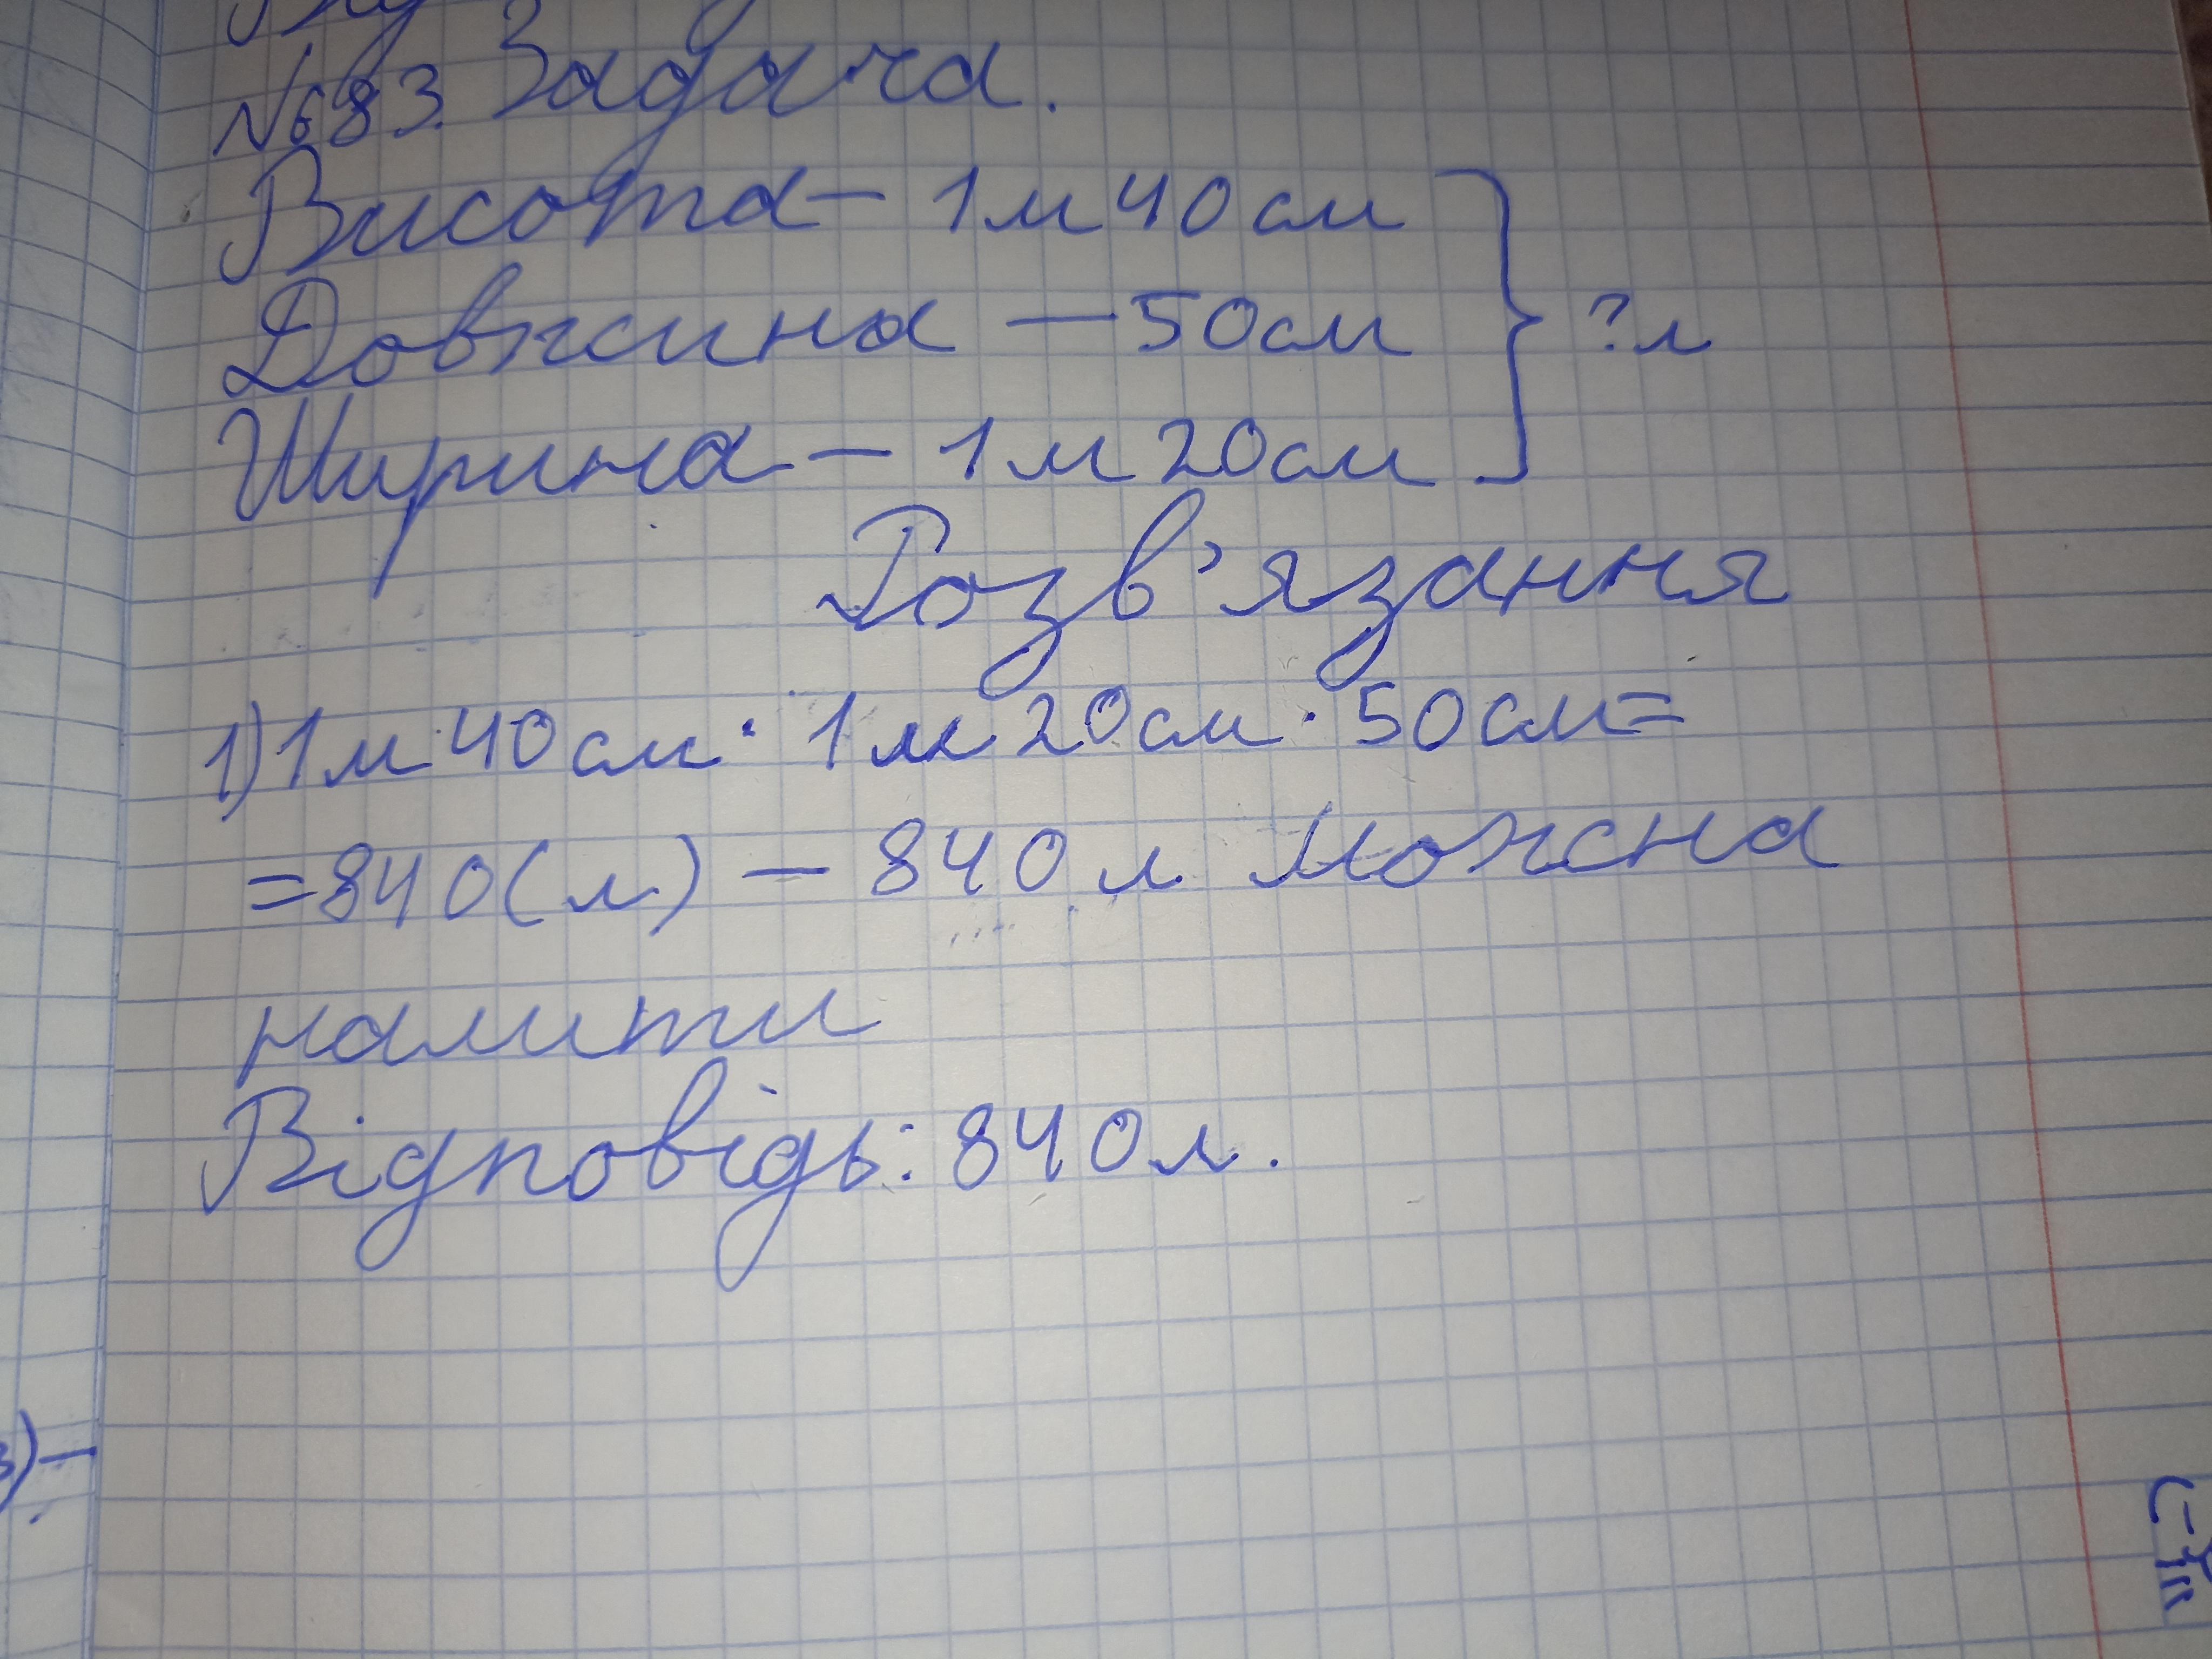 №683. Задача.
Висота – 1м 40см
Довжина – 50см } ?л
Ширина – 1м 20см
Розв'язання
1) 1м 40см · 1м 20см · 50см =
= 840 (л) – 840 л можна
налити
Відповідь: 840л.